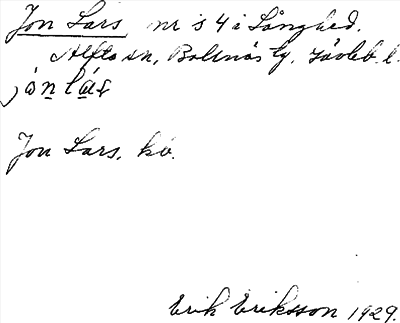 Jon Lars nr s 4 i Långhed.
Alfta sn, Bollnäs tg, Gävleb. l.
jo̱n la̱s
Jon Lars, hö.
Erik Eriksson 1929.